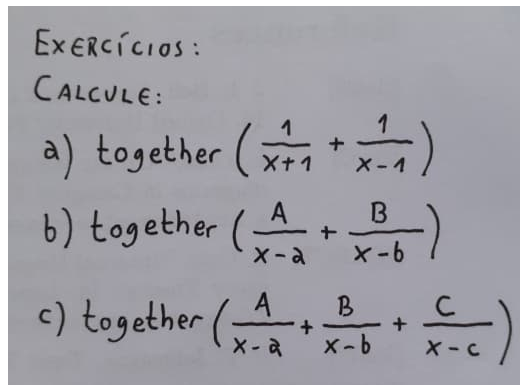 EXERCÍCIOS:
CALCULE:
a) together ( 1/(x+1) + 1/(x-1) )
b) together ( A/(x-a) + B/(x-b) )
c) together ( A/(x-a) + B/(x-b) + C/(x-c) )